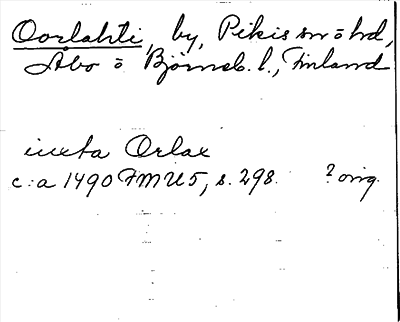 Oorlahti, by, Pikis sn o hd,
Åbo o Björneb. l., Finland
iuxta Orlax
c:a 1490 FMU 5, s. 298. ? orig.